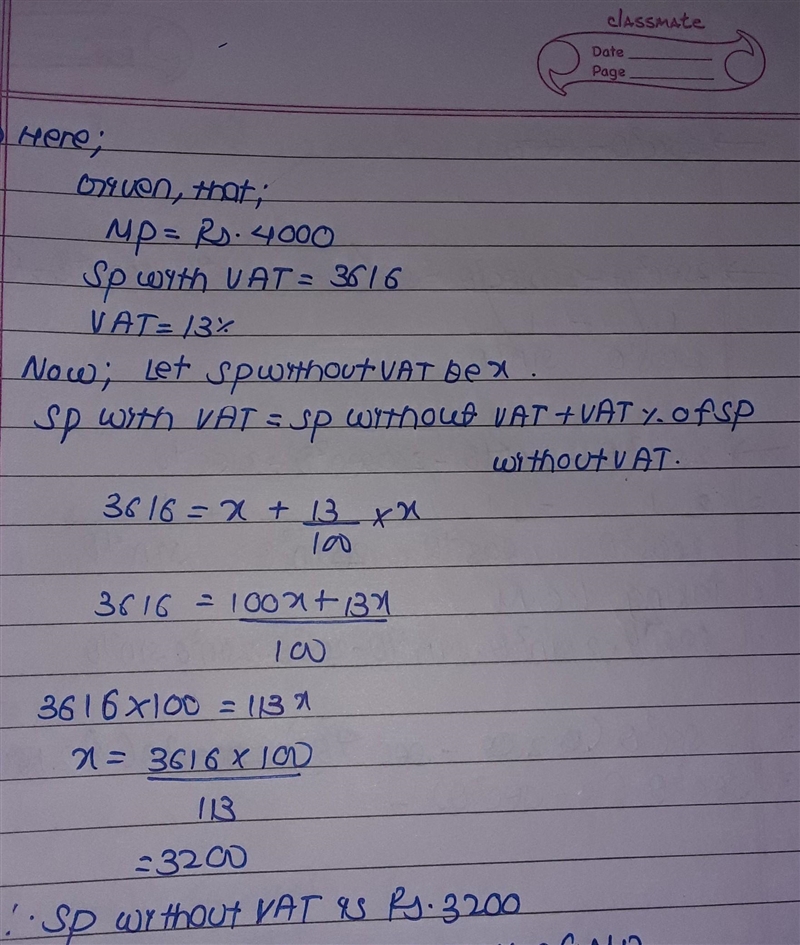 classmate
Date
Page
Here;
Given, that;
MP = Rs. 4000
SP with VAT = 3616
VAT = 13%
Now; Let SP without VAT be x.
SP with VAT = SP without VAT + VAT % of SP
without VAT.
3616 = x + 13/100 × x
3616 = 100x + 13x / 100
3616 × 100 = 113x
x = 3616 × 100 / 113
= 3200
∴ SP without VAT is Rs. 3200